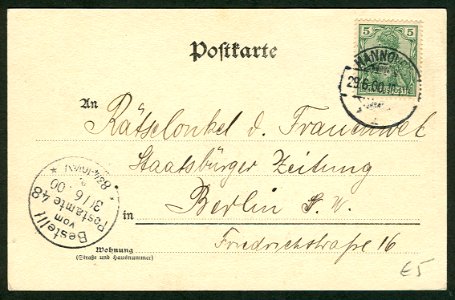 Postkarte
5 5
HANNOVER
29.6.00
An
Rätselonkel d. Frauenwelt
Staatsbürger Zeitung
in Berlin S.W.
Friedrichstraße 16
Wohnung
(Straße und Hausnummer)
Bestellt
vom
Postamte 48
00
£5